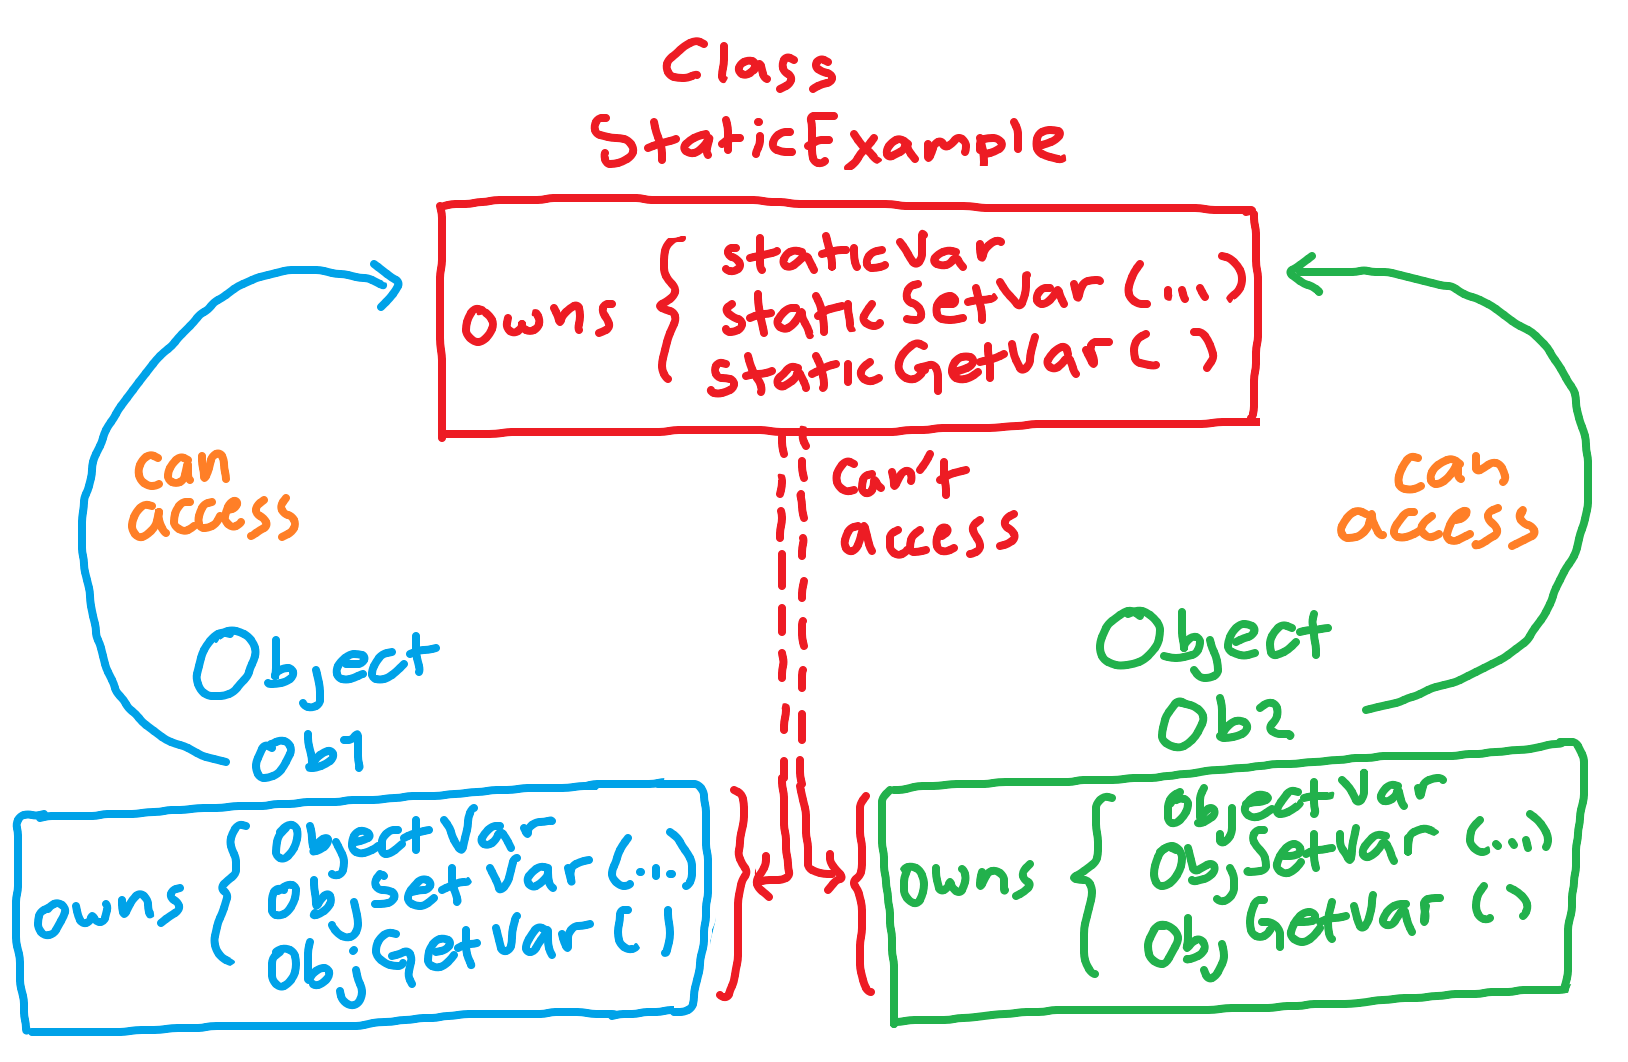 Class
StaticExample
owns { staticVar
staticSetVar (...)
staticGetVar ( )
can
access
can't
access
can
access
Object
Ob1
owns { ObjectVar
ObjSetVar (...)
ObjGetVar ( )
Object
Ob2
owns { ObjectVar
ObjSetVar (...)
ObjGetVar ( )